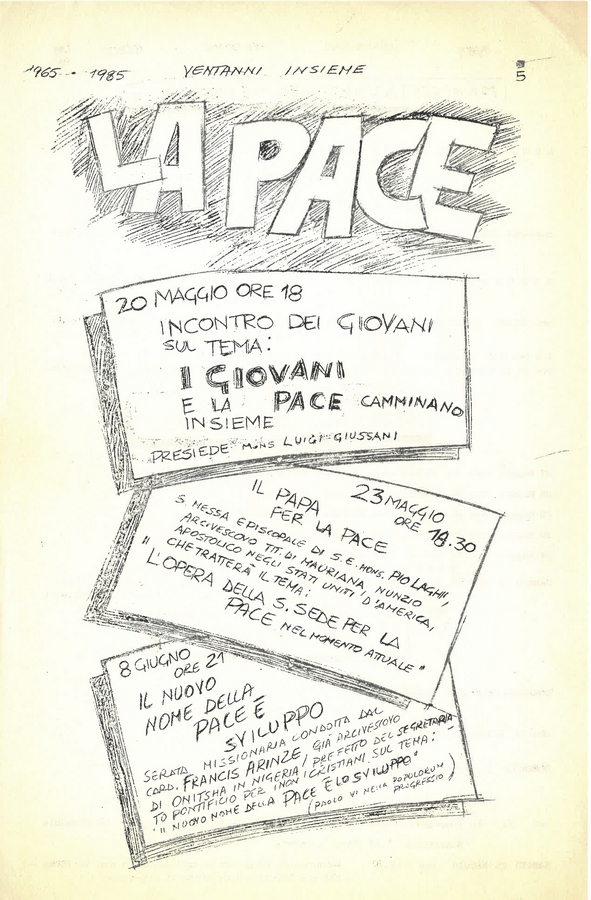 1965 - 1985 VENTANNI INSIEME 5
LA PACE
20 MAGGIO ORE 18
INCONTRO DEI GIOVANI
SUL TEMA:
I GIOVANI
E LA PACE CAMMINANO
INSIEME
PRESIEDE MONS LUIGI GIUSSANI
23 MAGGIO
ORE 18.30
IL PAPA
PER LA PACE
S. MESSA EPISCOPALE DI S.E. MONS. PIO LAGHI,
ARCIVESCOVO TIT. DI MAURIANA, NUNZIO
APOSTOLICO NEGLI STATI UNITI D'AMERICA,
CHE TRATTERÀ IL TEMA:
"L'OPERA DELLA S. SEDE PER LA
PACE NEL MOMENTO ATTUALE"
8 GIUGNO
ORE 21
IL NUOVO
NOME DELLA
PACE È
SVILUPPO
SERATA MISSIONARIA CONDOTTA DAL
CARD. FRANCIS ARINZE, GIÀ ARCIVESCOVO
DI ONITSHA IN NIGERIA / PREFETTO DEL SEGRETARIA-
TO PONTIFICIO PER I NON CRISTIANI SUL TEMA:
"IL NUOVO NOME DELLA PACE È LO SVILUPPO"
(PAOLO VI NELLA POPULORUM
PROGRESSIO)